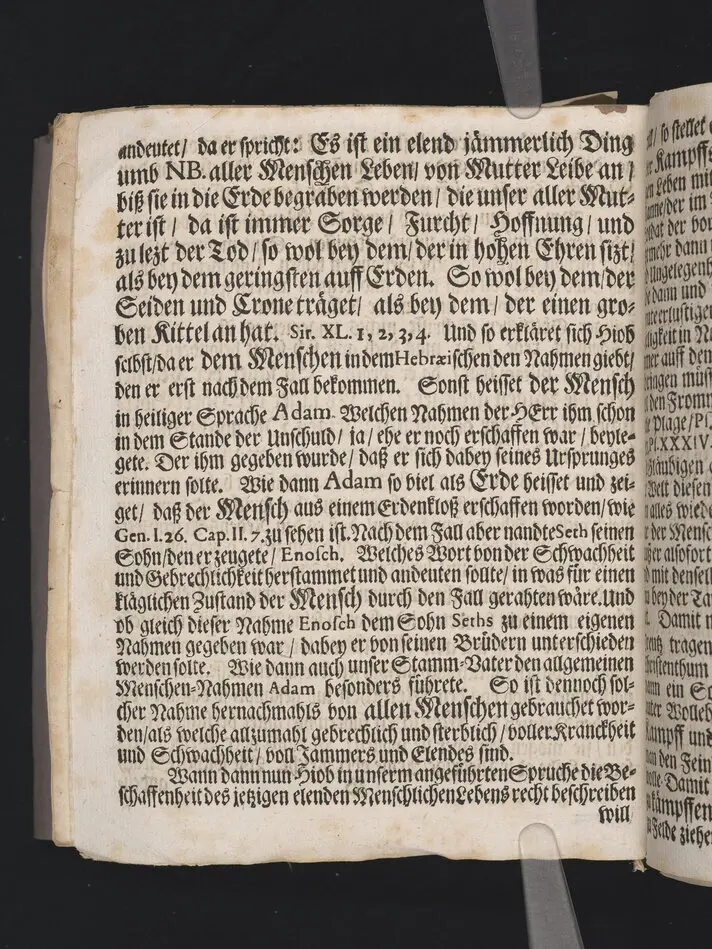 andeutet/ da er spricht: Es ist ein elend jämmerlich Ding
umb NB. aller Menschen Leben/ von Mutter Leibe an/
biß sie in die Erde begraben werden/ die unser aller Mut-
ter ist/ da ist immer Sorge/ Furcht/ Hoffnung/ und
zu lezt der Tod/ so wol bey dem/ der in hohen Ehren sizt/
als bey dem geringsten auff Erden. So wol bey dem/ der
Seiden und Crone träget/ als bey dem/ der einen gro-
ben Kittel an hat. Sir. XL. 1, 2, 3, 4. Und so erkläret sich Hiob
selbst/ da er dem Menschen in dem Hebræischen den Nahmen giebt/
den er erst nach dem Fall bekommen. Sonst heisset der Mensch
in heiliger Sprache Adam. Welchen Nahmen der HErr ihm schon
in dem Stande der Unschuld/ ja/ ehe er noch erschaffen war/ beyle-
gete. Der ihm gegeben wurde/ daß er sich dabey seines Ursprunges
erinnern solte. Wie dann Adam so viel als Erde heisset und zei-
get/ daß der Mensch aus einem Erdenkloß erschaffen worden/ wie
Gen. I. 26. Cap. II. 7. zu sehen ist. Nach dem Fall aber nandte Seth seinen
Sohn/ den er zeugete/ Enosch. Welches Wort von der Schwachheit
und Gebrechlichkeit herstammet und andeuten sollte/ in was für einen
kläglichen Zustand der Mensch durch den Fall gerahten wäre. Und
ob gleich dieser Nahme Enosch dem Sohn Seths zu einem eigenen
Nahmen gegeben war/ dabey er von seinen Brüdern unterschieden
werden solte. Wie dann auch unser Stamm-Vater den allgemeinen
Menschen-Nahmen Adam besonders führete. So ist dennoch sol-
cher Nahme hernachmahls von allen Menschen gebrauchet wor-
den/ als welche allzumahl gebrechlich und sterblich/ voller Kranckheit
und Schwachheit/ voll Jammers und Elendes sind.
Wann dann nun Hiob in unserm angeführten Spruche die Be-
schaffenheit des jetzigen elenden Menschlichen Lebens recht beschreiben
will